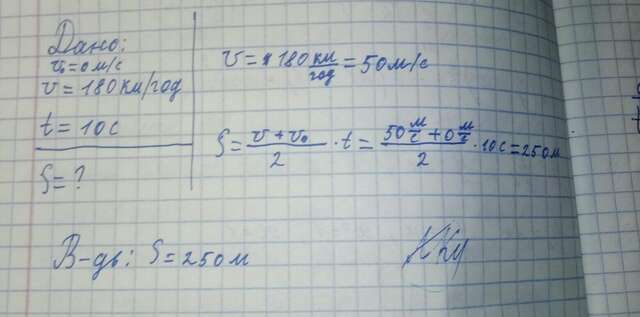 Дано:
v₀ = 0 м/с
v = 180 км/год
t = 10 с
S = ?
v = 180 км/год = 50 м/с
S = (v + v₀)/2 · t = (50 м/с + 0 м/с)/2 · 10 с = 250 м
В-дь: S = 250 м